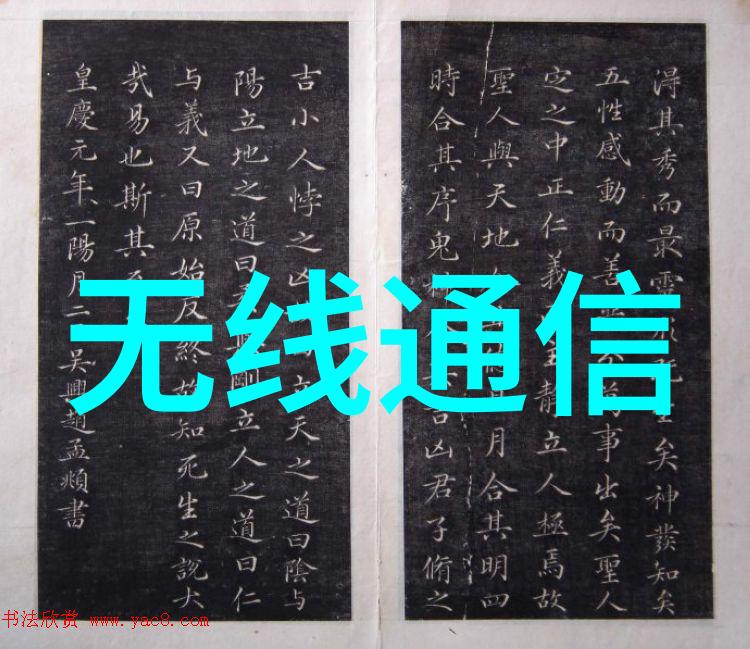 無线通信
得其秀而最靈 既生矣神發知矣
五性感動而善 分萬事出矣聖人
定之中正仁義 主靜立人極焉故
聖人與天地 月合其明四
時合其序鬼神 吉凶君子脩之
吉小人悖之凶 立天之道曰陰与
陽立地之道曰 剛立人之道曰仁
与義又曰原始反終故知死生之說大
哉易也斯其至
皇慶元年一陽月二 吴興趙孟頫書
书法欣赏 www.yac8.com